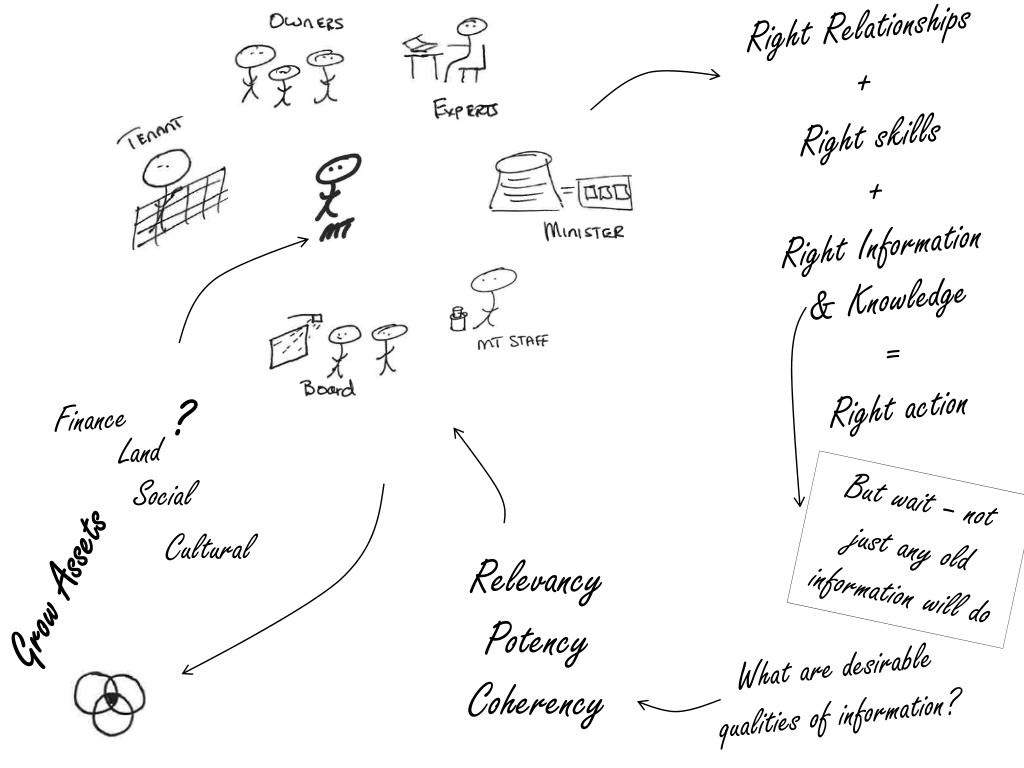 OWNERS
EXPERTS
TENANT
MT
MINISTER
MT STAFF
Board
Right Relationships
+
Right skills
+
Right Information
& Knowledge
=
Right action
But wait – not
just any old
information will do
What are desirable
qualities of information?
Relevancy
Potency
Coherency
Finance
?
Land
Social
Cultural
Grow Assets